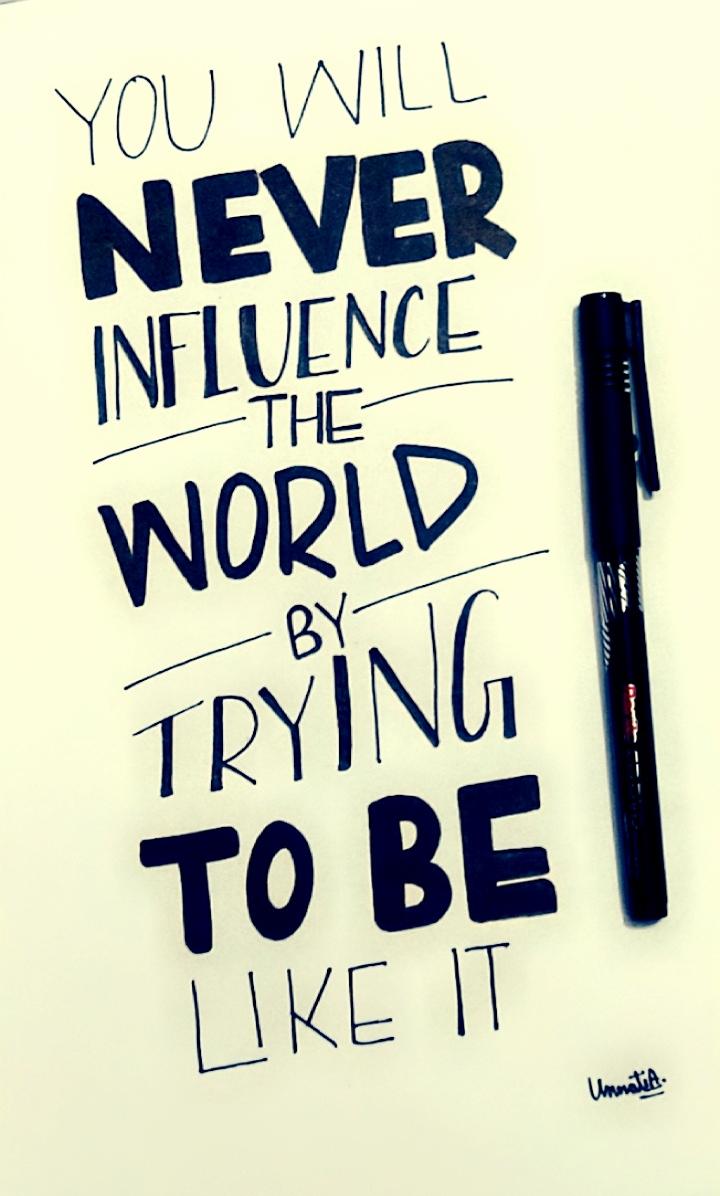 YOU WILL
NEVER
INFLUENCE
THE
WORLD
BY
TRYING
TO BE
LIKE IT